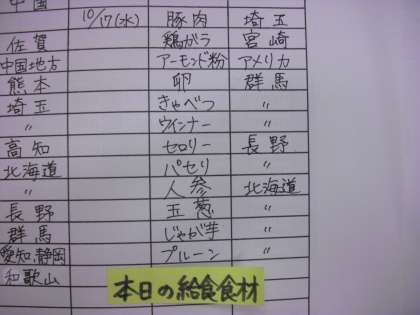 中国 10/17(水) 豚肉 埼玉
佐賀 鶏ガラ 宮崎
中国地方 アーモンド粉 アメリカ
熊本 卵 群馬
埼玉 きゃべつ 〃
〃 ウインナー 〃
高知 セロリー 長野
北海道 パセリ 〃
〃 人参 北海道
長野 玉葱 〃
群馬 じゃが芋 〃
愛知、静岡 プルーン 〃
和歌山
本日の給食食材